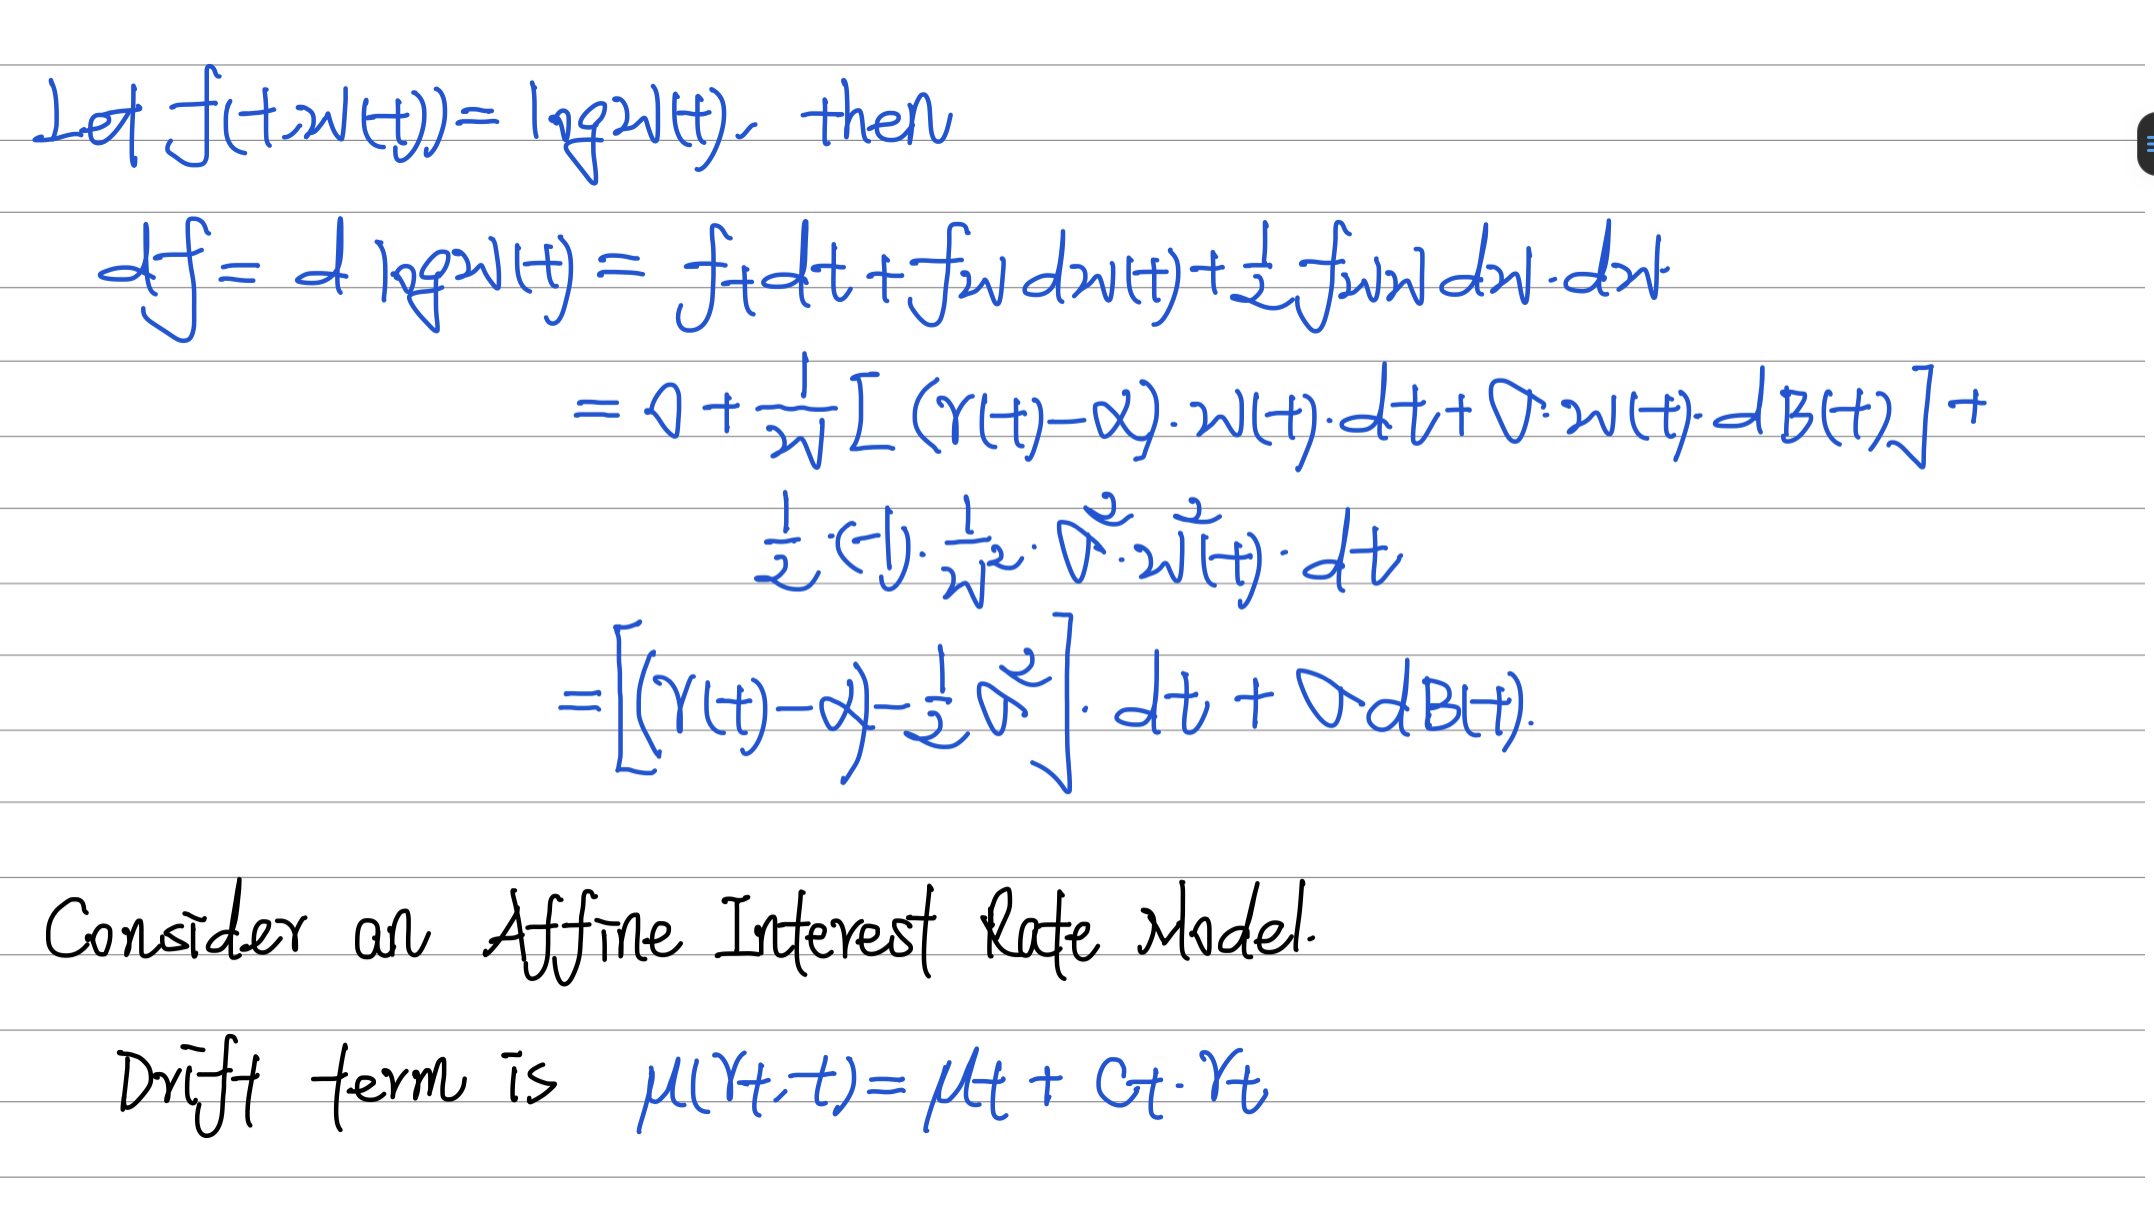 Let f(t, W(t)) = log W(t), then
df = d log W(t) = f_t dt + f_W dW(t) + 1/2 f_WW dW·dW.
= 0 + 1/W [(r(t)-α)·W(t)·dt + σ·W(t)·dB(t)] +
1/2·(-1)·1/W²·σ²·W²(t)·dt
= [(r(t)-α) - 1/2 σ²]·dt + σdB(t).
Consider an Affine Interest Rate Model.
Drift term is μ(r_t, t) = μ_t + C_t·r_t,